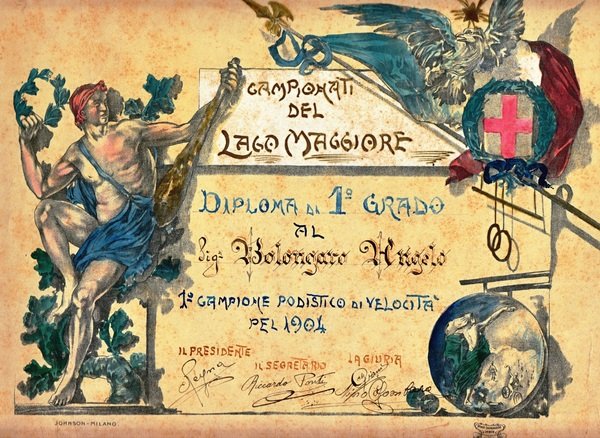 CAMPIONATI
DEL
LAGO MAGGIORE
DIPLOMA DI 1º GRADO
AL
Sigr Bolongaro Angelo
1º CAMPIONE PODISTICO DI VELOCITA'
PEL 1904
IL PRESIDENTE
IL SEGRETARIO
LA GIURIA
Riccardo
JOHNSON-MILANO